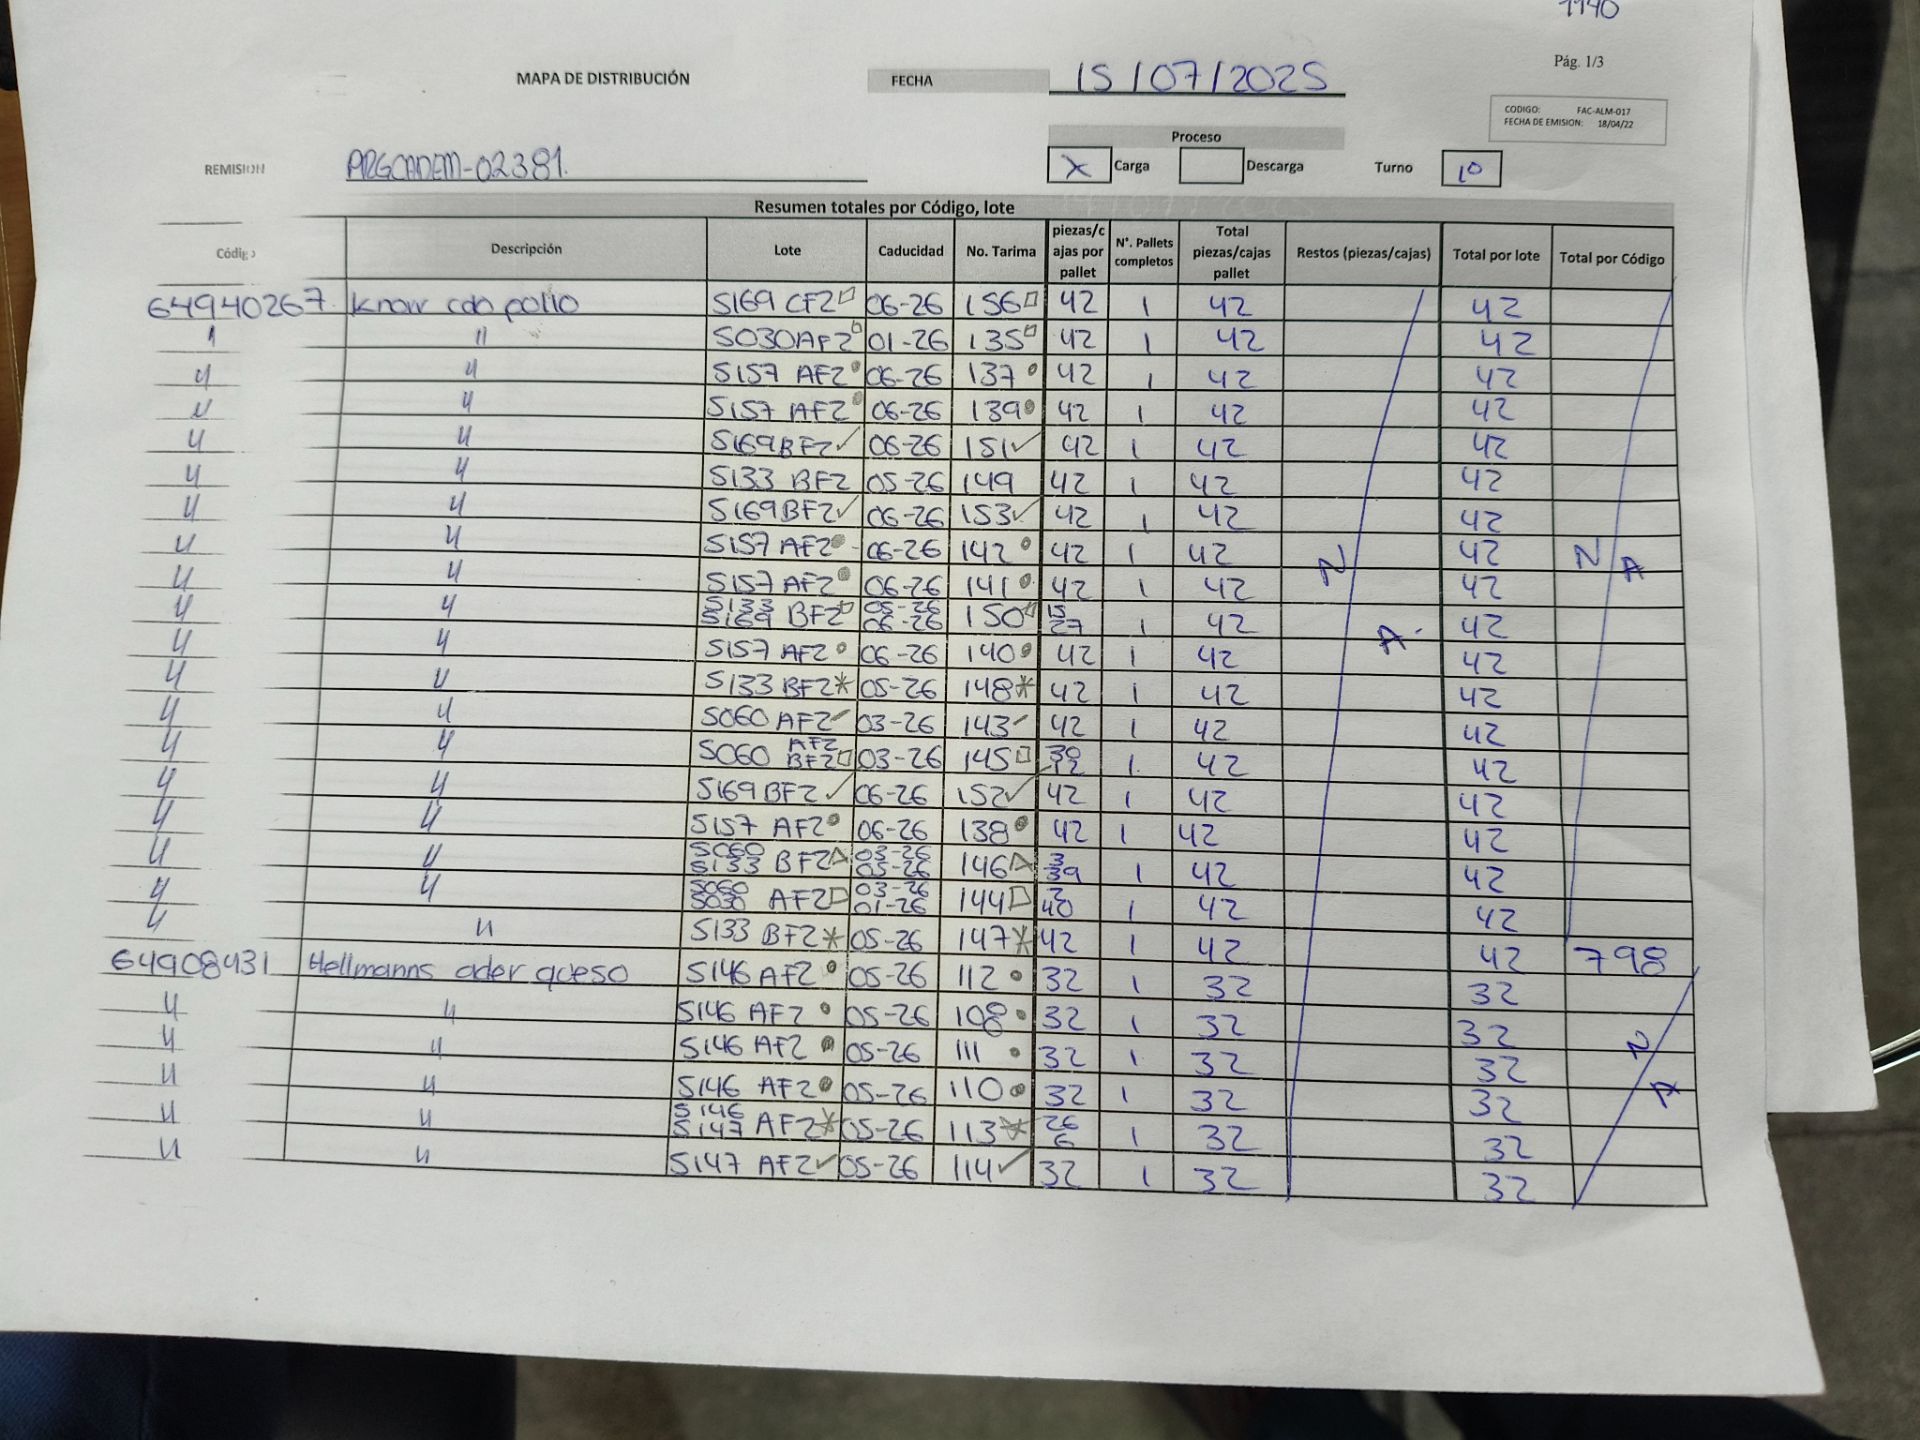 1140
Pág. 1/3
MAPA DE DISTRIBUCIÓN FECHA 15/07/2025
CODIGO: FAC-ALM-017
FECHA DE EMISION: 18/04/22
Proceso
REMISION PRGCADEM-02381. X Carga Descarga Turno 1º
Resumen totales por Código, lote
Código Descripción Lote Caducidad No. Tarima piezas/cajas por pallet N°. Pallets completos Total piezas/cajas pallet Restos (piezas/cajas) Total por lote Total por Código
64940267 Knorr con pollo S169 CF2 06-26 156 42 1 42 42
" " S030AF2 01-26 135 42 1 42 42
" " S157 AF2 06-26 137 42 1 42 42
" " S157 AF2 06-26 139 42 1 42 42
" " S169BF2 ✓ 06-26 151 ✓ 42 1 42 42
" " S133 BF2 05-26 149 42 1 42 42
" " S169BF2 ✓ 06-26 153 ✓ 42 1 42 42
" " S157 AF2 06-26 142 42 1 42 N 42 N A
" " S157 AF2 06-26 141 42 1 42 42
" " S133 S169 BF2 05-26 06-26 150 15 27 1 42 A 42
" " S157 AF2 06-26 140 42 1 42 42
" " S133 BF2* 05-26 148* 42 1 42 42
" " S060 AF2 ✓ 03-26 143 ✓ 42 1 42 42
" " S060 AF2 BF2 03-26 145 30 12 1 42 42
" " S169 BF2 ✓ 06-26 152 ✓ 42 1 42 42
" " S157 AF2 06-26 138 42 1 42 42
" " S060 S133 BF2 03-26 05-26 146 3 39 1 42 42
" " S060 S030 AF2 03-26 01-26 144 2 40 1 42 42
" " S133 BF2* 05-26 147* 42 1 42 42 798
64908431 Hellmanns ader queso S146 AF2 05-26 112 32 1 32 32
" " S146 AF2 05-26 108 32 1 32 32
" " S146 AF2 05-26 111 32 1 32 32 N
" " S146 AF2 05-26 110 32 1 32 32 A
" " S146 S147 AF2* 05-26 113* 26 6 1 32 32
" " S147 AF2 ✓ 05-26 114 ✓ 32 1 32 32